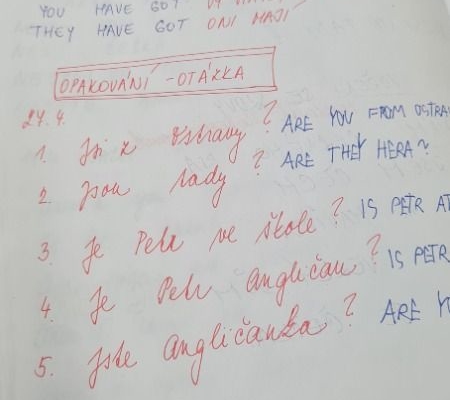 YOU HAVE GOT
THEY HAVE GOT ONI MAJÍ
OPAKOVÁNÍ - OTÁZKA
27.4.
1. Jsi z Ostravy? ARE YOU FROM OSTRA
2. Jsou tady? ARE THEY HERA?
3. Je Petr ve škole? IS PETR AT
4. Je Petr Angličan? IS PETR
5. Jste Angličanka? ARE Y